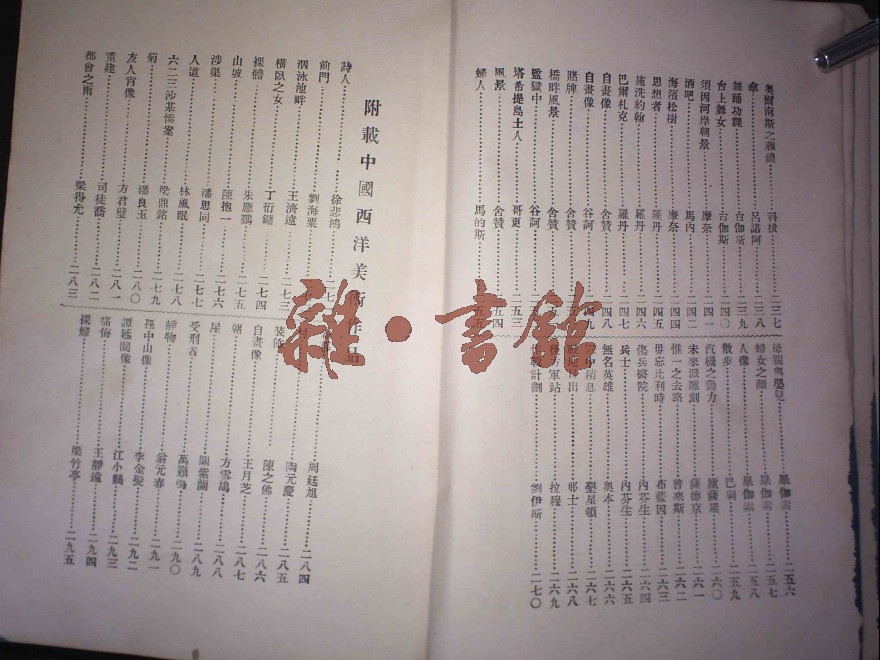 奧爾南斯之葬禮 科拔 二三七
傘 呂諾阿 二三八
舞踊功課 台伽斯 二三九
台上舞女 台伽斯 二四〇
須因河岸朝景 摩奈 二四一
酒吧 馬內 二四二
海濱松樹 摩奈 二四四
思想者 羅丹 二四五
施洗約翰 羅丹 二四六
巴爾札克 羅丹 二四七
自畫像 舍贊 二四八
自畫像 谷訶 二四九
賭牌 舍贊
橋畔風景 舍贊
監獄中 谷訶
塔希提島土人 哥更 二五三
風景 舍贊 二五四
婦人 馬的斯
母親與嬰兒 畢伽索 二五六
婦女之顏 畢伽索 二五七
人像 畢伽索 二五八
散步 二五九
汽機之動力 盧薩羅 二六〇
未來派雕刻 薩德京 二六一
惟一之去路 普來斯 二六二
毋忘比利時 布藍因 二六三
傷兵醫院 內芬生 二六四
兵士 內芬生 二六五
無名英雄 奧本 二六六
中稍息 聖星頓 二六七
出 耶士 二六八
軍站 拉穆 二六九
計劃 劉伊斯 二七〇
附載中國西洋美術作品
詩人 徐悲鴻 二七
前門 劉海粟
泅泳池畔 王濟遠 二七三
橫臥之女 丁衍鏞 二七四
裸體 朱應鵬 二七五
山坡 陳抱一 二七六
涉渠 潘思同 二七七
人道 林風眠 二七八
六二三沙基慘案 梁鼎銘 二七九
菊 潘良玉 二八〇
友人肖像 方君璧 二八一
重建 司徒喬 二八二
都會之雨 梁得尤 二八三
周廷旭 二八四
陶元慶 二八五
裝飾 陳之佛 二八六
自畫像 王月芝 二八七
朝 方雪鴣 二八八
星 關紫蘭 二八九
受刑者 萬籟鳴 二九〇
靜物 翁元春 二九一
孫中山像 李金髮 二九二
譚延闓像 江小鶼 二九三
痛悔 王靜遠 二九四
裸婦 梁竹亭 二九五
雜·書館